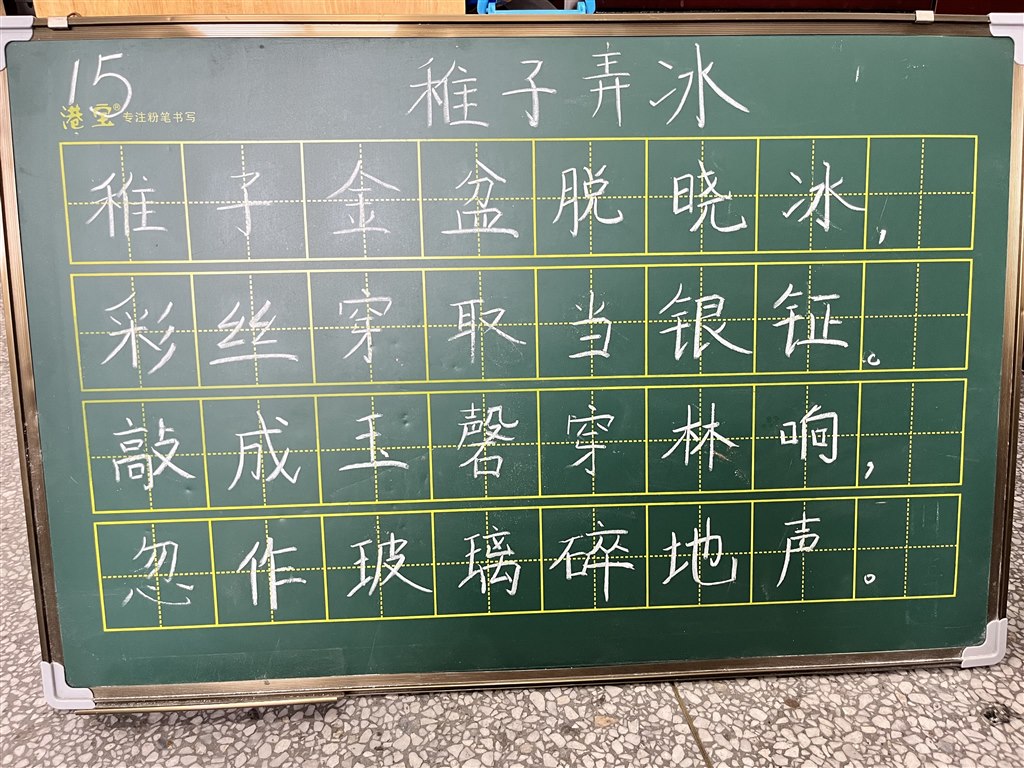 15
稚子弄冰
港宝® 专注粉笔书写
稚子金盆脱晓冰，
彩丝穿取当银钲。
敲成玉磬穿林响，
忽作玻璃碎地声。